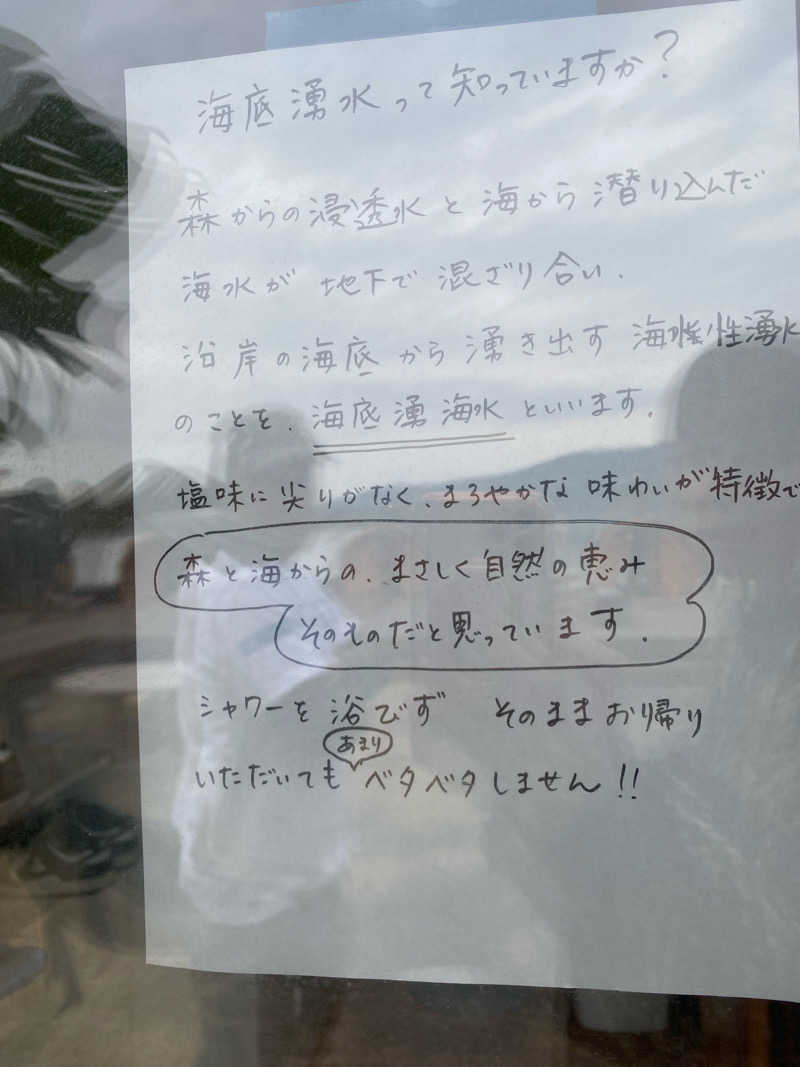 海底湧水って知っていますか?
森からの浸透水と海から潜り込んだ
海水が地下で混ざり合い、
沿岸の海底から湧き出す海水性湧水
のことを、海底湧海水といいます。
塩味に尖りがなく、まろやかな味わいが特徴で
森と海からの、まさしく自然の恵み
そのものだと思っています。
シャワーを浴びず そのままお帰り
いただいてもあまりベタベタしません!!